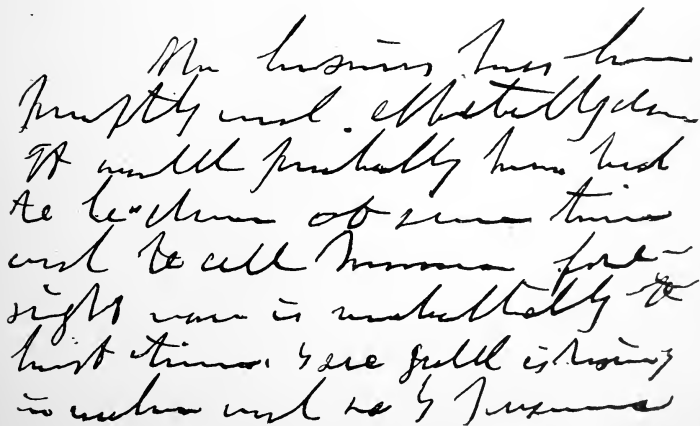 The business has been
promptly and effectually done
It would probably have had
to be done at some time
and to all human fore-
sight now is undoubtedly the
best time. I see gold is rising
in and so I